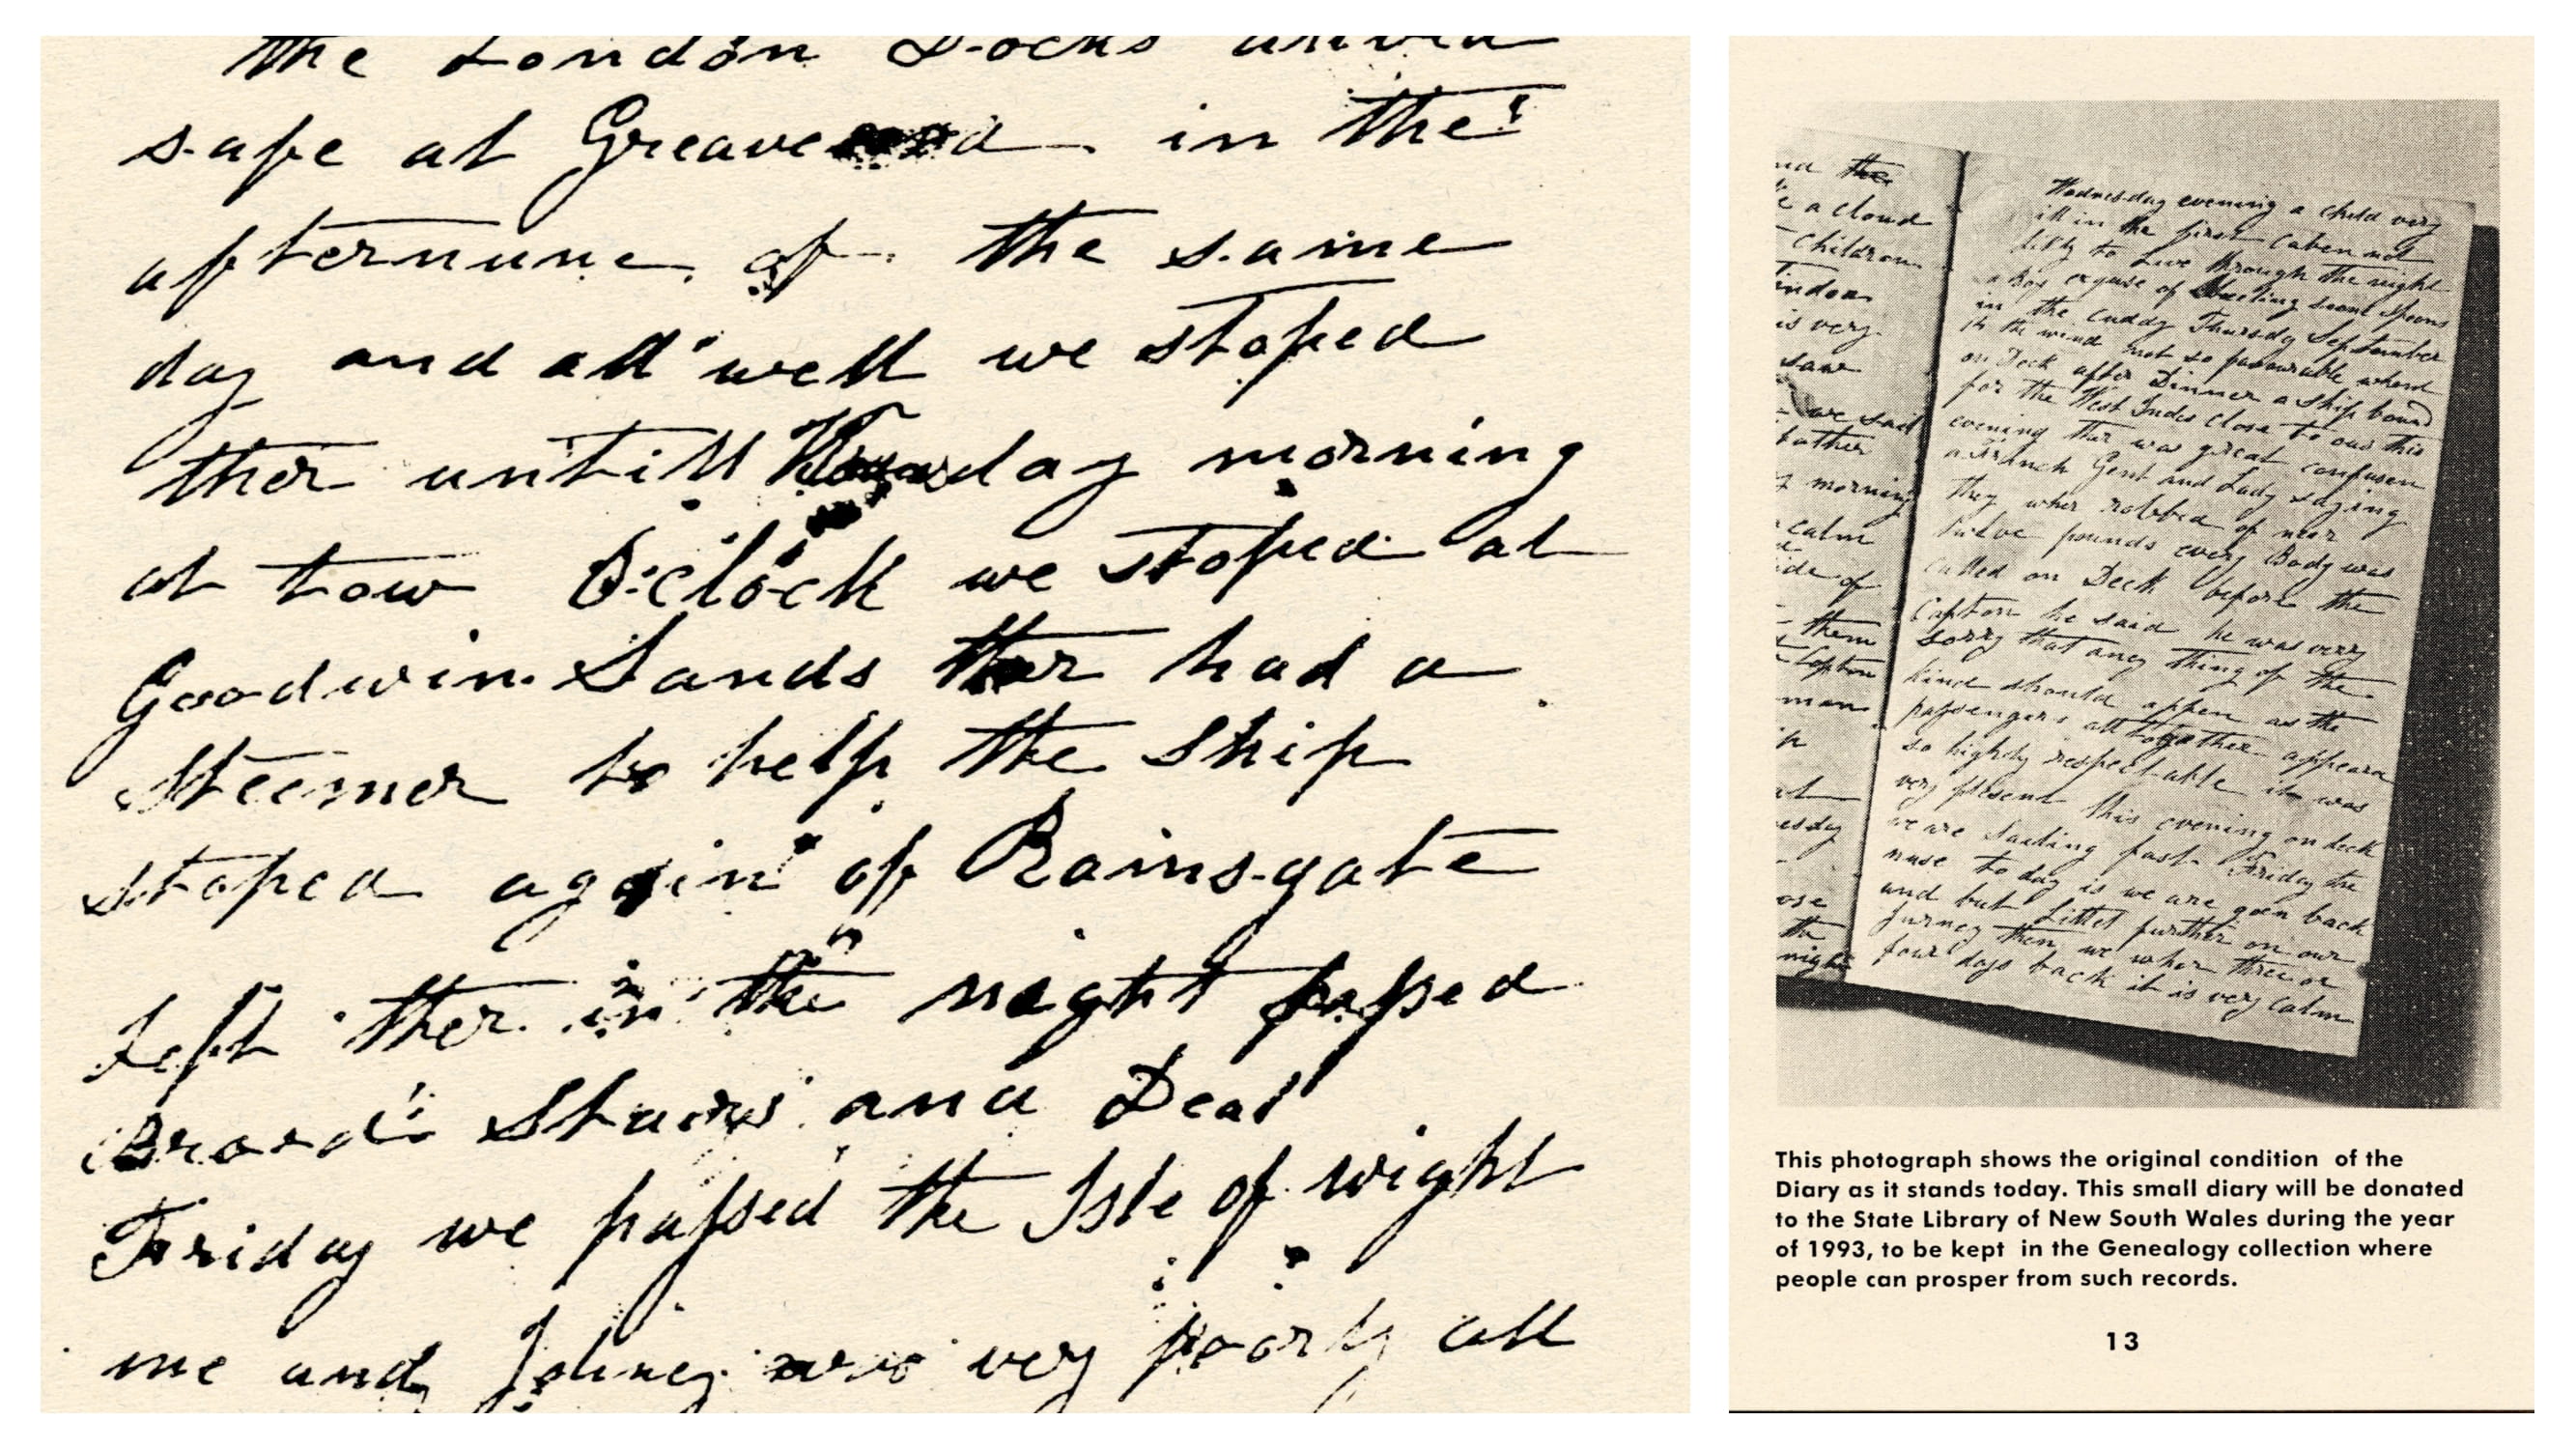 the London Docks arived
safe at Greavesend in the
afternune of the same
day and all well we stoped
ther untill day morning
at tow O'clock we stoped at
Goodwin Sands ther had a
Steemer to help the Ship
stoped again of Ramsgate
Left ther in the night paſsed
Broad Stairs and Deal
Friday we paſsed the Isle of wight
me and Johney was very poorly all
nd the
a cloud
Children
indon
is very
saw
we sail
father
morning
calm
ide of
them
Capton
man
at
esday
ose
the
night
Wednesday evening a child very
ill in the first Caben not
likly to Live through the night
a Boy of Steeling some Spoons
in the cuddy Thursdy September
the wind not so favourable whent
on Deck after Dinner a Ship bound
for the West Indes Close to ous this
evening ther was great confusen
a Franch Gent and Lady saying
they wher robbed of near
twelve pounds every Body was
Called on Deck before the
Capton he said he was very
sorry that aney thing of the
kind should appen as the
paſsengers all togather appeard
so highly respectable it was
very plesent this evening on deck
we are Sailing fast Friday the
nuse to day is we are goen back
and but Littel further on our
Jurney then we wher three or
four days back it is very Calm
This photograph shows the original condition of the
Diary as it stands today. This small diary will be donated
to the State Library of New South Wales during the year
of 1993, to be kept in the Genealogy collection where
people can prosper from such records.
13